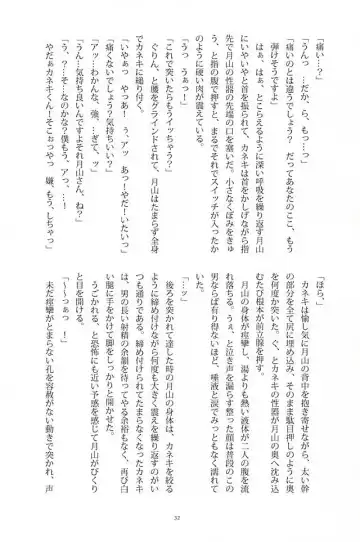 「痛い…？」
「うんっ…だから、もっ…っ」
「痛いのとは違うでしょう？　だってあなたのここ、もう
弾けそうですよ」
　はぁ、はぁ、とうかされるように深い呼吸を繰り返す月山
にいやいやと首を振られて、カネキは首をかしげながら指
先で月山の性器の先端の口を塞いだ。小さなくぼみをきゅ
と指の腹で押すと、まるでそれでスイッチが入ったか
のように硬い肉が震えている。
「う　うぁっ！」
「これで突いたらもうイッちゃう？」
　ぐりん、と腰をグラインドされて、月山はたまらず全身
でカネキに縋り付く。
「いやぁっ　やっあ！　ぅ、アッ　あうっ！やだ！いたいっ」
「痛くないでしょう？気持ちいい？」
「アッ…わかんな、強、…ぎて、ッ」
「うん…気持ち良いんですよそれ月山さん、ね？」
「う、？…そ…なのかな？僕もう、あっ、…！
やだぁカネキくん！そこぉっやっ　嫌、もう、しちゃっ」
「ほら」
　カネキは愉し気に月山の背中を抱き寄せながら、太い幹
の部分を全て尻に埋め込み、そのまま駄目押しのように奥
を何度か突いた。ぐ、とカネキの性器が月山の奥へ沈み込
むたび根本が前立腺を押す。
　月山の身体が痙攣し、湯よりも熱い液体が二人の腹を流
れ落ちる。うぇ、と泣き声を漏らす整った顔は普段のこの
男ならば有り得ないほど、唾液と涙でみっともなく濡れて
いた。
「…ッ」
　後ろを突かれて達した時の月山の身体は、カネキをきつ
く締め付けながら何度も大きく震えを繰り返すのがい
つも通りである。締め付けられてたまらなくなったカネキ
は、男の長い射精の余韻を待ってやる余裕もなく、再び白
い腿に手をかけて脚をしっかりと開かせた。
　うごかれる、と恐怖にも近い予感を感じて月山がびくり
と目を開ける。
「～～っぁっ　！」
　未だ痙攣がとまらない孔を容赦がない動きで突かれ、声
32